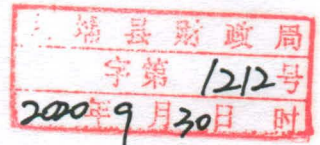 埔县财政局
字第1212号
2020年9月30日 时